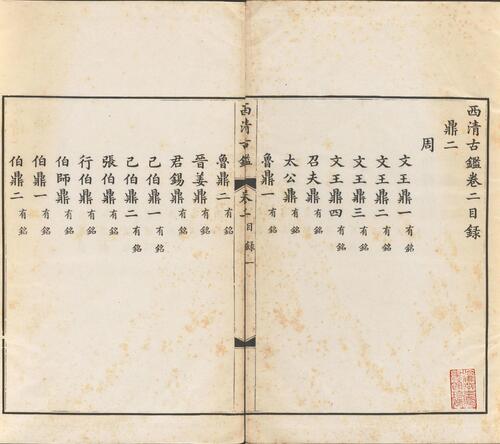 西清古鑑卷二目録
鼎二
周
文王鼎一 有銘
文王鼎二 有銘
文王鼎三 有銘
文王鼎四 有銘
召夫鼎 有銘
太公鼎 有銘
魯鼎一 有銘
西清古鑑 卷二目録 一
魯鼎二 有銘
晉姜鼎 有銘
君錫鼎 有銘
己伯鼎一 有銘
己伯鼎二 有銘
張伯鼎 有銘
行伯鼎 有銘
伯師鼎 有銘
伯鼎一 有銘
伯鼎二 有銘